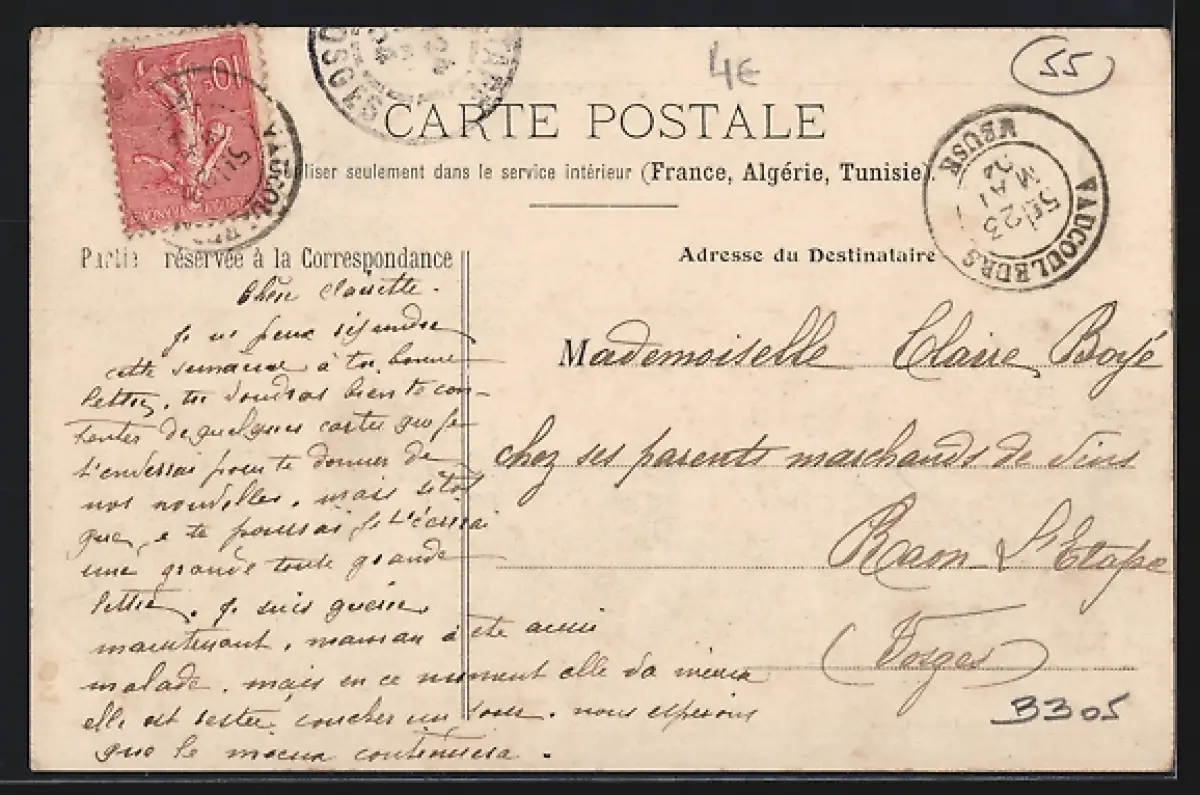 4€
55
10
VOSGES
CARTE POSTALE
utiliser seulement dans le service intérieur (France, Algérie, Tunisie).
VAUCOULEURS
MEUSE
5E/23
MAI
04
VAUCOULEURS
Partie réservée à la Correspondance
Adresse du Destinataire
Chère Clairette.
Je ne peux répondre
cette semaine à ta bonne
lettre, tu voudras bien te con-
tenter de quelques cartes que je
t'enverrai pour te donner de
nos nouvelles, mais sitôt
que je te pourrai je t'écrirai
une grande toute grande
lettre. Je suis guérie
maintenant, maman a été aussi
malade, mais en ce moment elle va mieux
elle est restée coucher un jour, nous espérons
que le mieux continuera.
Mademoiselle Claire Boyé
chez ses parents marchands de vins
Raon L'Etape
(Vosges)
3305